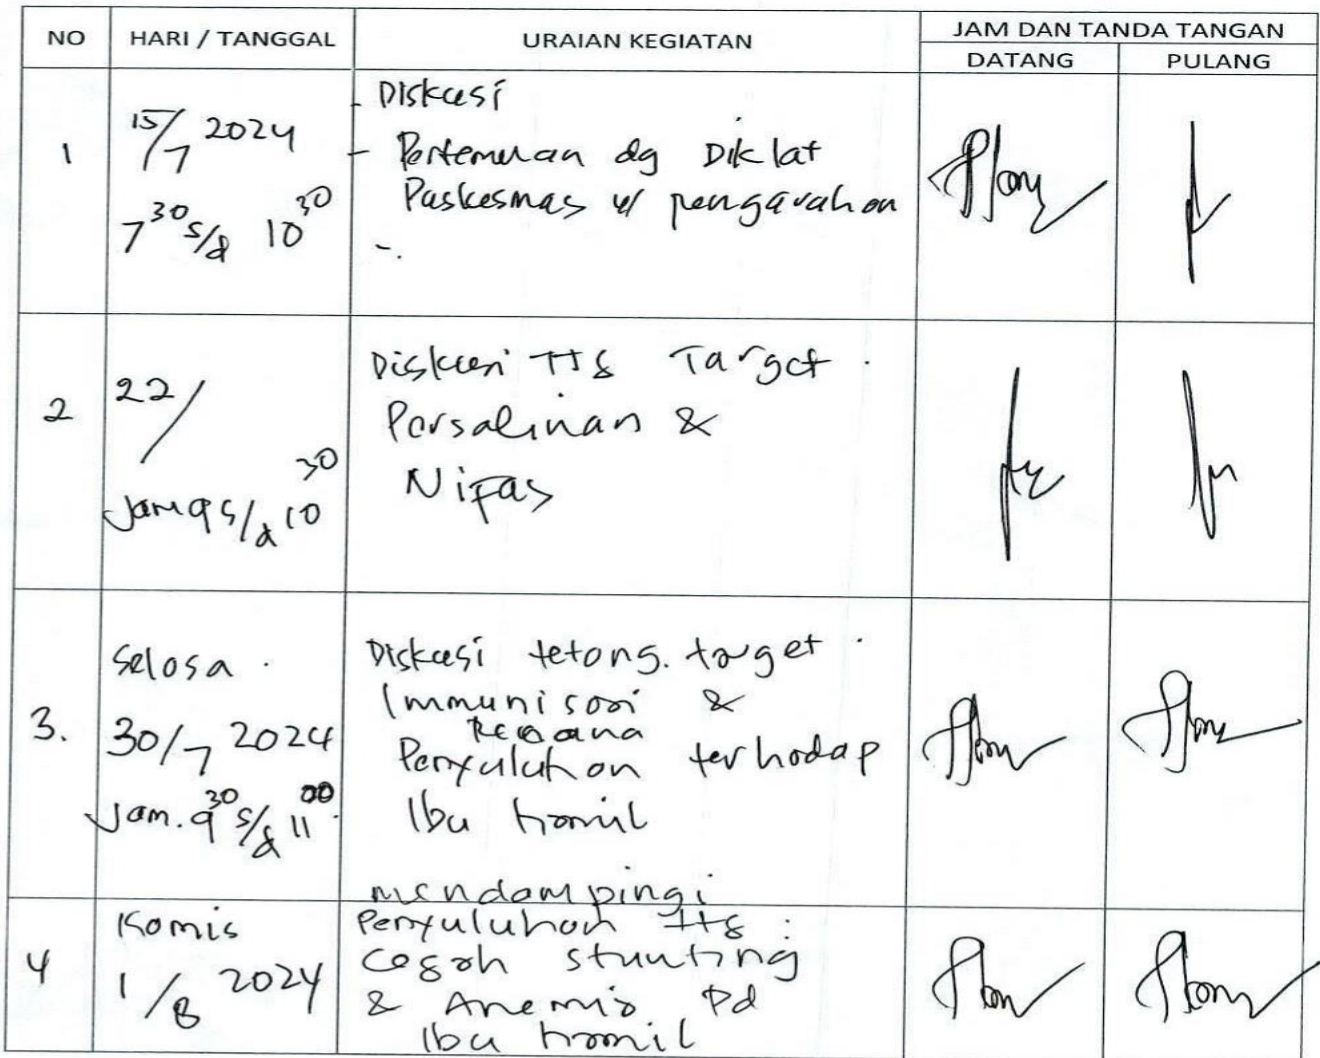 NO HARI / TANGGAL URAIAN KEGIATAN JAM DAN TANDA TANGAN
DATANG PULANG
1
15/7 2024
7 30 s/d 10 30
- Diskusi
- Pertemuan dg Diklat
Puskesmas u/ pengarahan
-.
2
22/
Jam 9 s/d 10 30
Diskusi ttg Target
Persalinan &
Nifas
3.
Selasa
30/7 2024
Jam. 9 30 s/d 11 00
Diskusi tetang. target
Immunisasi &
Rencana
Penyuluhan terhadap
Ibu hamil
4
Kamis
1/8 2024
mendampingi
Penyuluhan ttg :
cegah stunting
& Anemia Pd
Ibu hamil